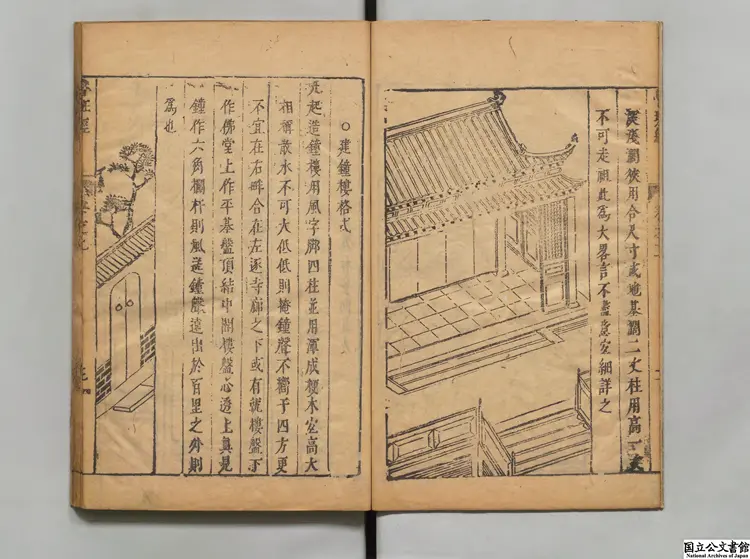 深淺闊狹用合尺寸或地基闊二丈柱用高一丈
不可走祖此為大畧言不盡意宜細詳之
○建鐘樓格式
凡起造鐘樓用風字脚四柱並用渾成梗木宜高大
相稱散水不可大低低則掩鐘聲不嚮于四方更
不宜在右畔合在左逐寺廊之下或有就樓盤下
作佛堂上作平棊盤頂結中開樓盤心透上真見
鐘作六角欄杆則風送鐘聲遠出於百里之外則
為也
国立公文書館
National Archives of Japan